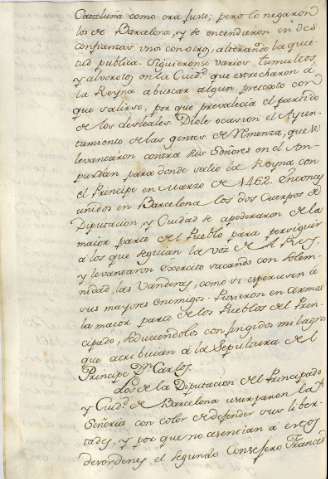 Cataluña como era justo, pero lo negaron
los de Barcelona, y se encendieron en des
confianzas unos con otros, alterando la quie
tud publica. Siguieronse varios tumultos,
y alvorotos en la Ciud.d que estrecharon a
la Reyna a buscar algun pretexto con
que salirse, por que prevalecia el partido
de los desleales. Diole ocasion el Ayun
tamiento de las gentes de Remenza, que se
levantaron contra sus Señores en el Am
purdan para donde salio la Reyna con
el Principe en Marzo de 1462. Entonces
unidos en Barcelona los dos Cuerpos de
Diputacion, y Ciudad se apoderaron de la
maior parte del Pueblo para perseguir
a los que seguian la voz de el Rey,
y levantaron exercito sacando con solem
nidad las Vanderas, como si estuviesen a
sus mayores enemigos. Pusieron en armas
la maior parte de los Pueblos del Prin
cipado, seduciendolos con fingidos milagros
que atribuian a la Sepultura de el
Principe D.n Carlos.
Los de la Diputacion del Principado
y Ciud.d de Barcelona usurpaban la
Señoria con color de defender sus liber
tades, y por que no asentian a estos
desordenes el segundo Consejero Frances